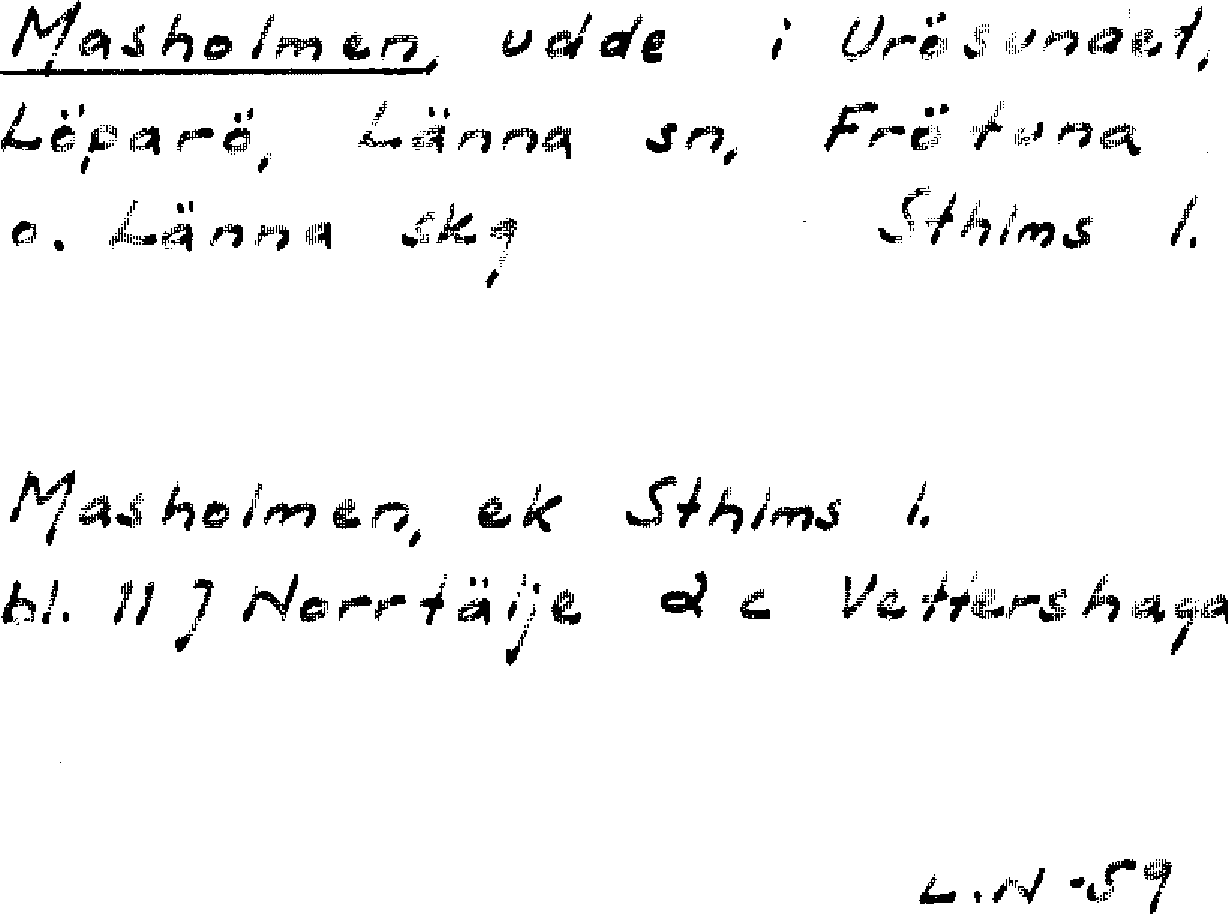 Masholmen, udde i Urösundet,
Löparö, Länna sn, Frötuna
o. Länna skg Sthlms l.
Masholmen, ek Sthlms l.
bl. 11 J Norrtälje d c Vettershaga
L.N -59